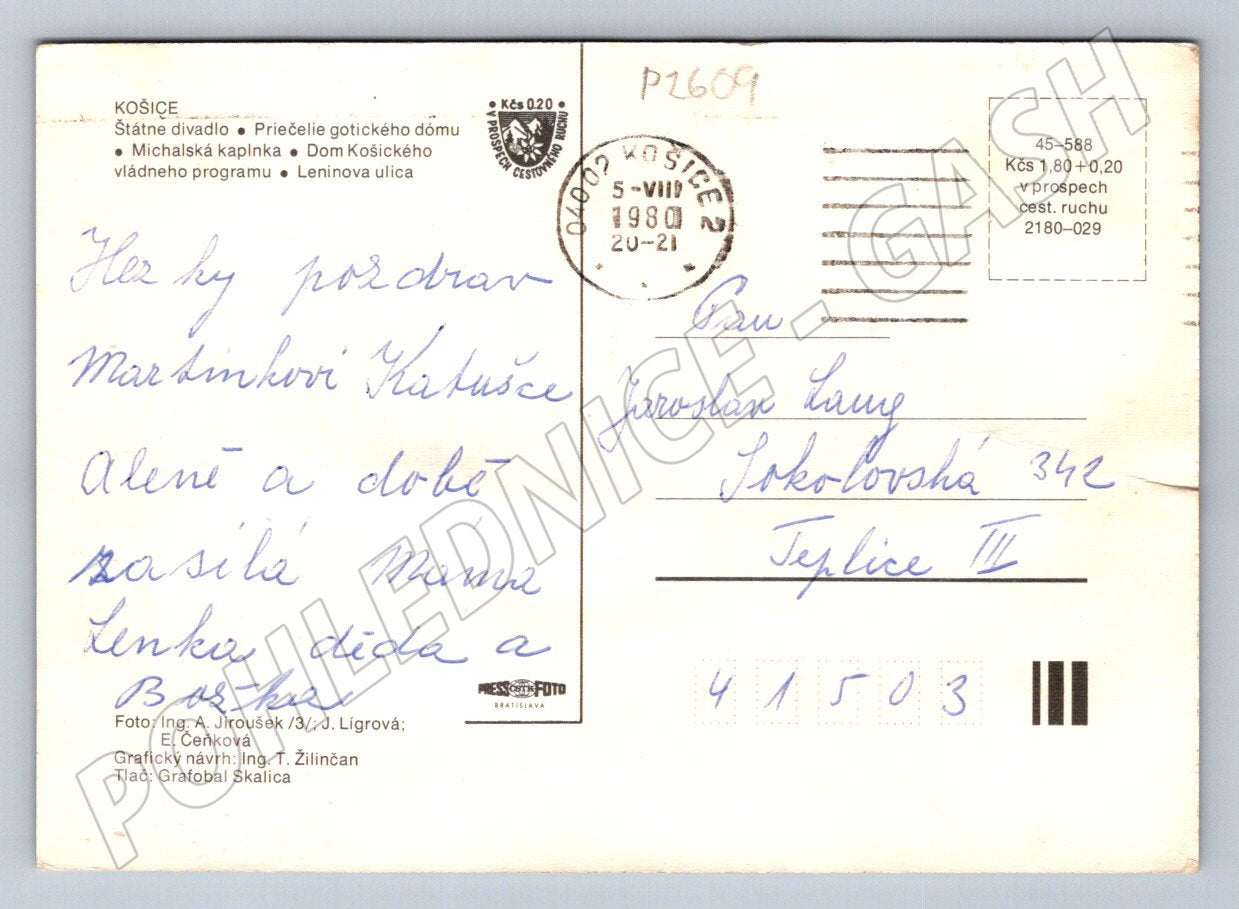 P2609
KOŠICE
Štátne divadlo • Priečelie gotického dómu
• Michalská kaplnka • Dom Košického
vládneho programu • Leninova ulica
• Kčs 0.20 •
V PROSPECH CESTOVNÉHO RUCHU
04002 KOŠICE 2
5-VIII
1980
20-21
45–588
Kčs 1,80+0,20
v prospech
cest. ruchu
2180–029
Hezky pozdrav
Martinkovi Katušce
Aleně a době
zasílá Máma
Lenka děda a
Božka
Pan
Jaroslav Lang
Sokolovská 342
Teplice III
41503
PRESS ČSTK FOTO
BRATISLAVA
Foto: Ing. A. Jiroušek /3/; J. Lígrová;
E. Čeňková
Grafický návrh: Ing. T. Žilinčan
Tlač: Grafobal Skalica
POHLEDNICE - GASH